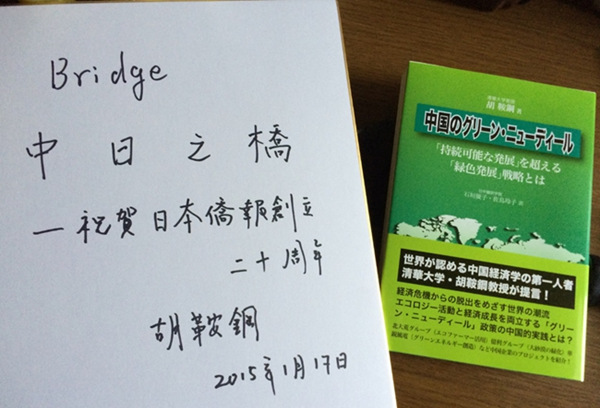 Bridge
中日之橋
—祝賀日本僑報創立
二十周年
胡鞍鋼
2015年1月17日
清華大学教授
胡鞍鋼 著
中国のグリーン・ニューディール
「持続可能な発展」を超える
「緑色発展」戦略とは
日中翻訳学院
石垣優子・佐鳥玲子 訳
世界が認める中国経済学の第一人者
清華大学・胡鞍鋼教授が提言！
経済危機からの脱出をめざす世界の潮流
エコロジー活動と経済成長を両立する「グリー
ン・ニューディール」政策の中国的実践とは？